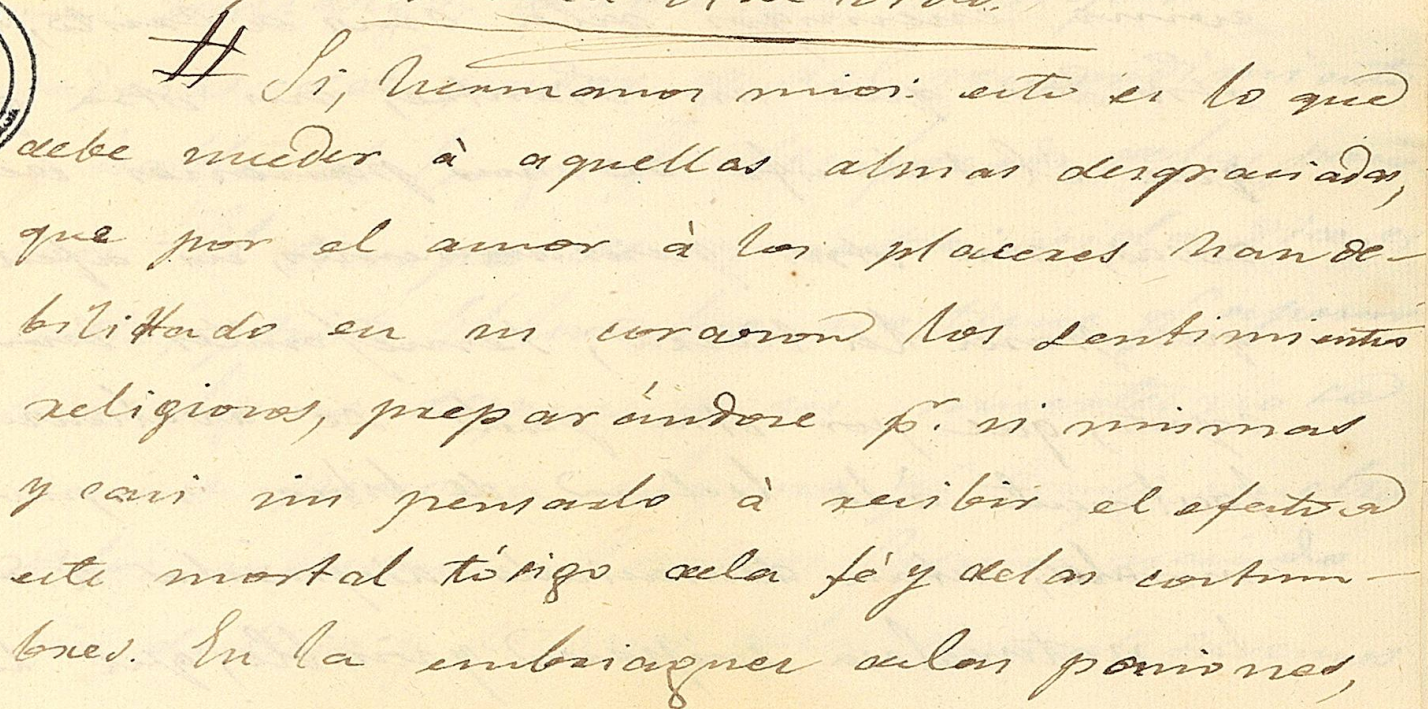 # Si, hermanos mios este es lo que
debe suceder à aquellas almas desgraciadas,
que por el amor à los placeres han de-
bilitado en su corazon los sentimientos
religiosos, preparándose pr. si mismas
y casi sin pensarlo à recibir el efecto d
este mortal tósigo dela fé y delas costum-
bres. En la embriaguez delas pasiones,